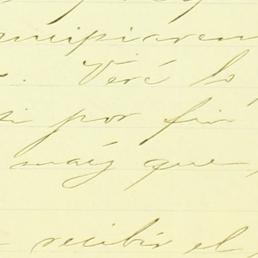 ncipiaren
. Veré lo
si por fin
maíz que
recibir el